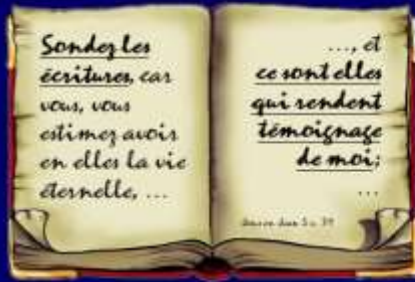 Sondez les
écritures, car
vous, vous
estimez avoir
en elles la vie
éternelle, ...
..., et
ce sont elles
qui rendent
témoignage
de moi;
...